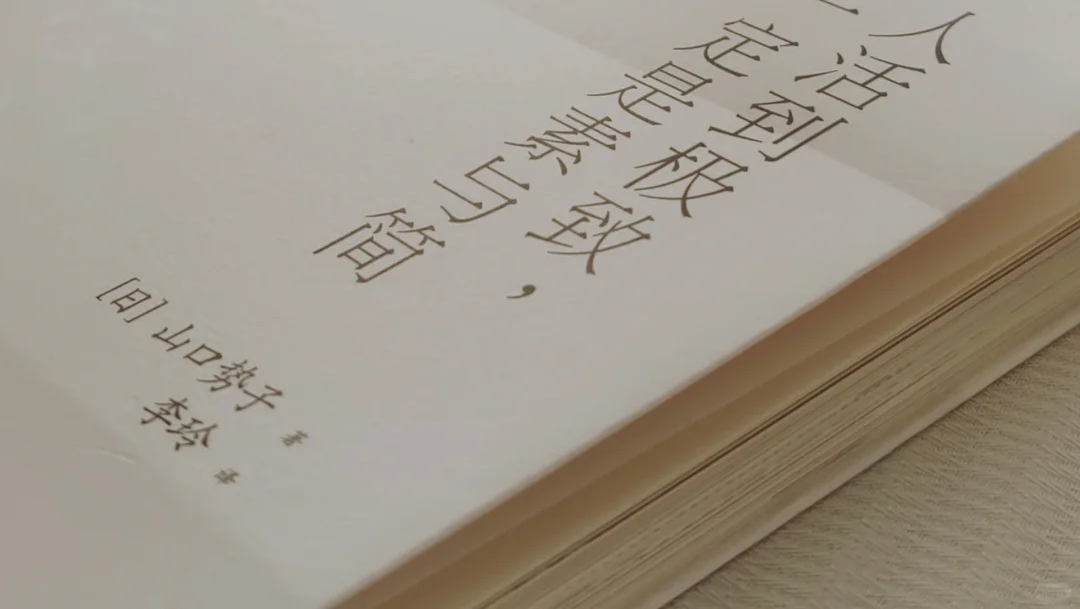 人活到极致，
一定是素与简
[日]山口势子 著
李玲 译